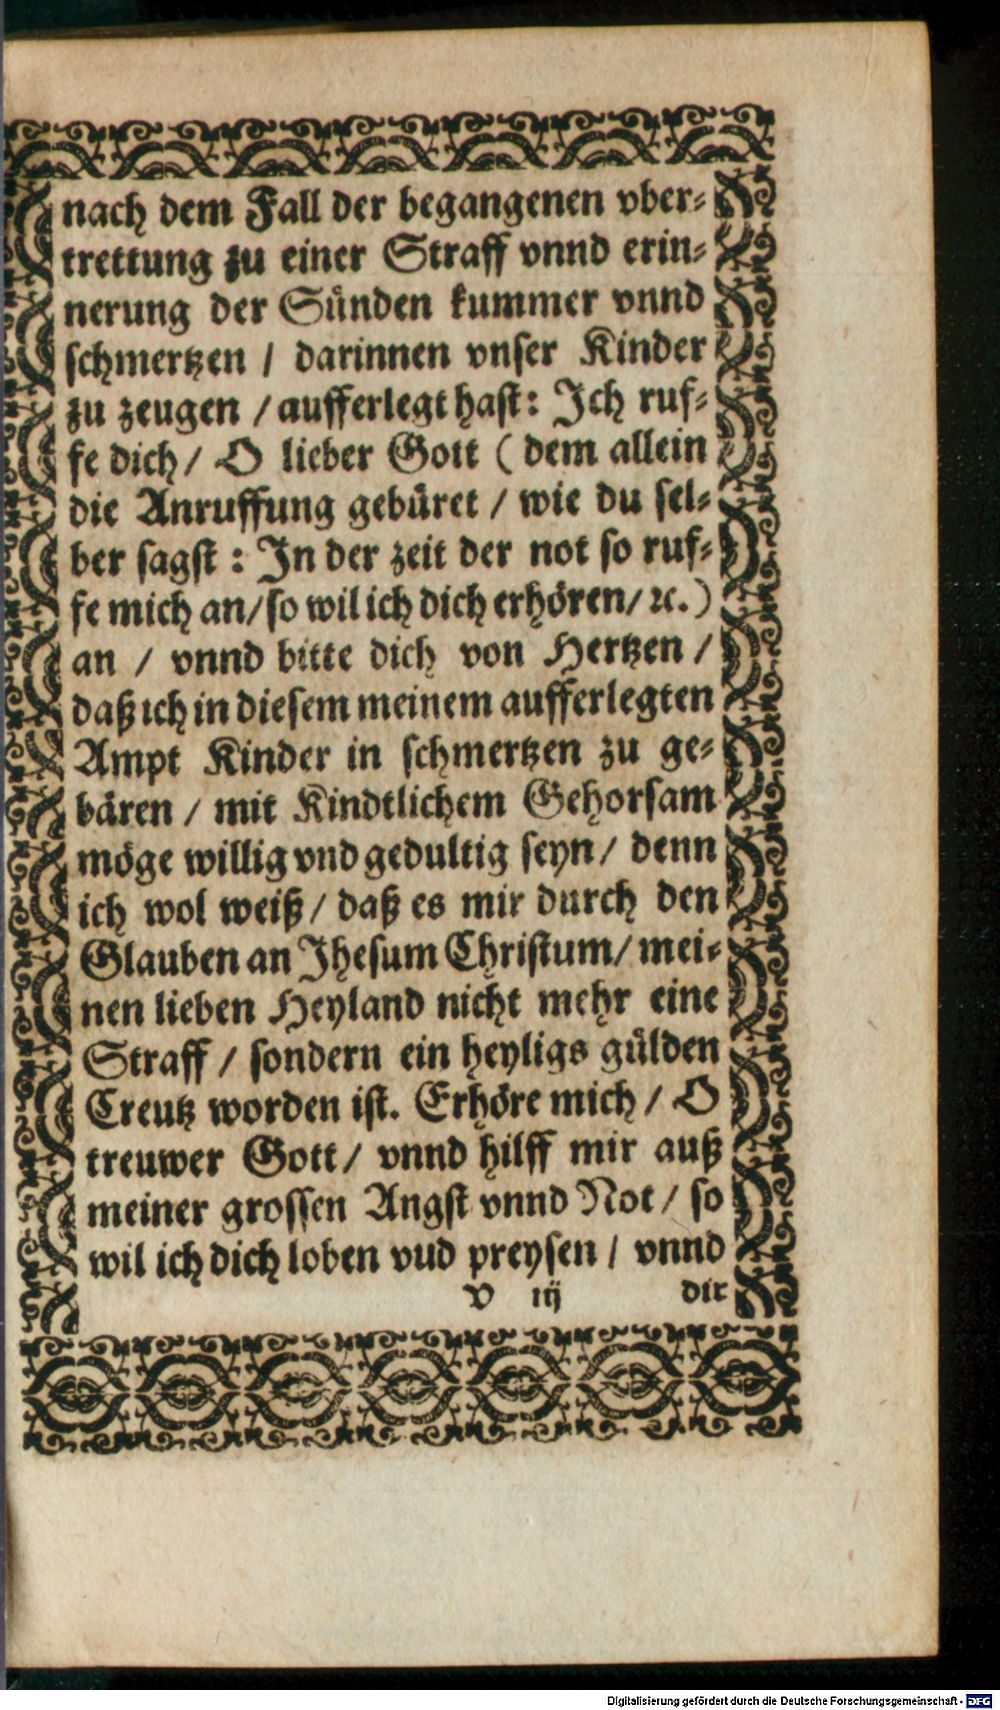 nach dem Fall der begangenen vber⸗
trettung zu einer Straff vnnd erin⸗
nerung der Sünden kummer vnnd
schmertzen / darinnen vnser Kinder
zu zeugen / aufferlegt hast: Ich ruf⸗
fe dich / O lieber Gott ( dem allein
die Anruffung gebüret / wie du sel⸗
ber sagst : In der zeit der not so ruf⸗
fe mich an / so wil ich dich erhören / ꝛc. )
an / vnnd bitte dich von Hertzen /
daß ich in diesem meinem aufferlegten
Ampt Kinder in schmertzen zu ge⸗
bären / mit Kindtlichem Gehorsam
möge willig vnd gedultig seyn / denn
ich wol weiß / daß es mir durch den
Glauben an Jhesum Christum / mei⸗
nen lieben Heyland nicht mehr eine
Straff / sondern ein heyligs gülden
Creutz worden ist. Erhöre mich / O
treuwer Gott / vnnd hilff mir auß
meiner grossen Angst vnnd Not / so
wil ich dich loben vud preysen / vnnd
v iij dir
Digitalisierung gefördert durch die Deutsche Forschungsgemeinschaft - DFG